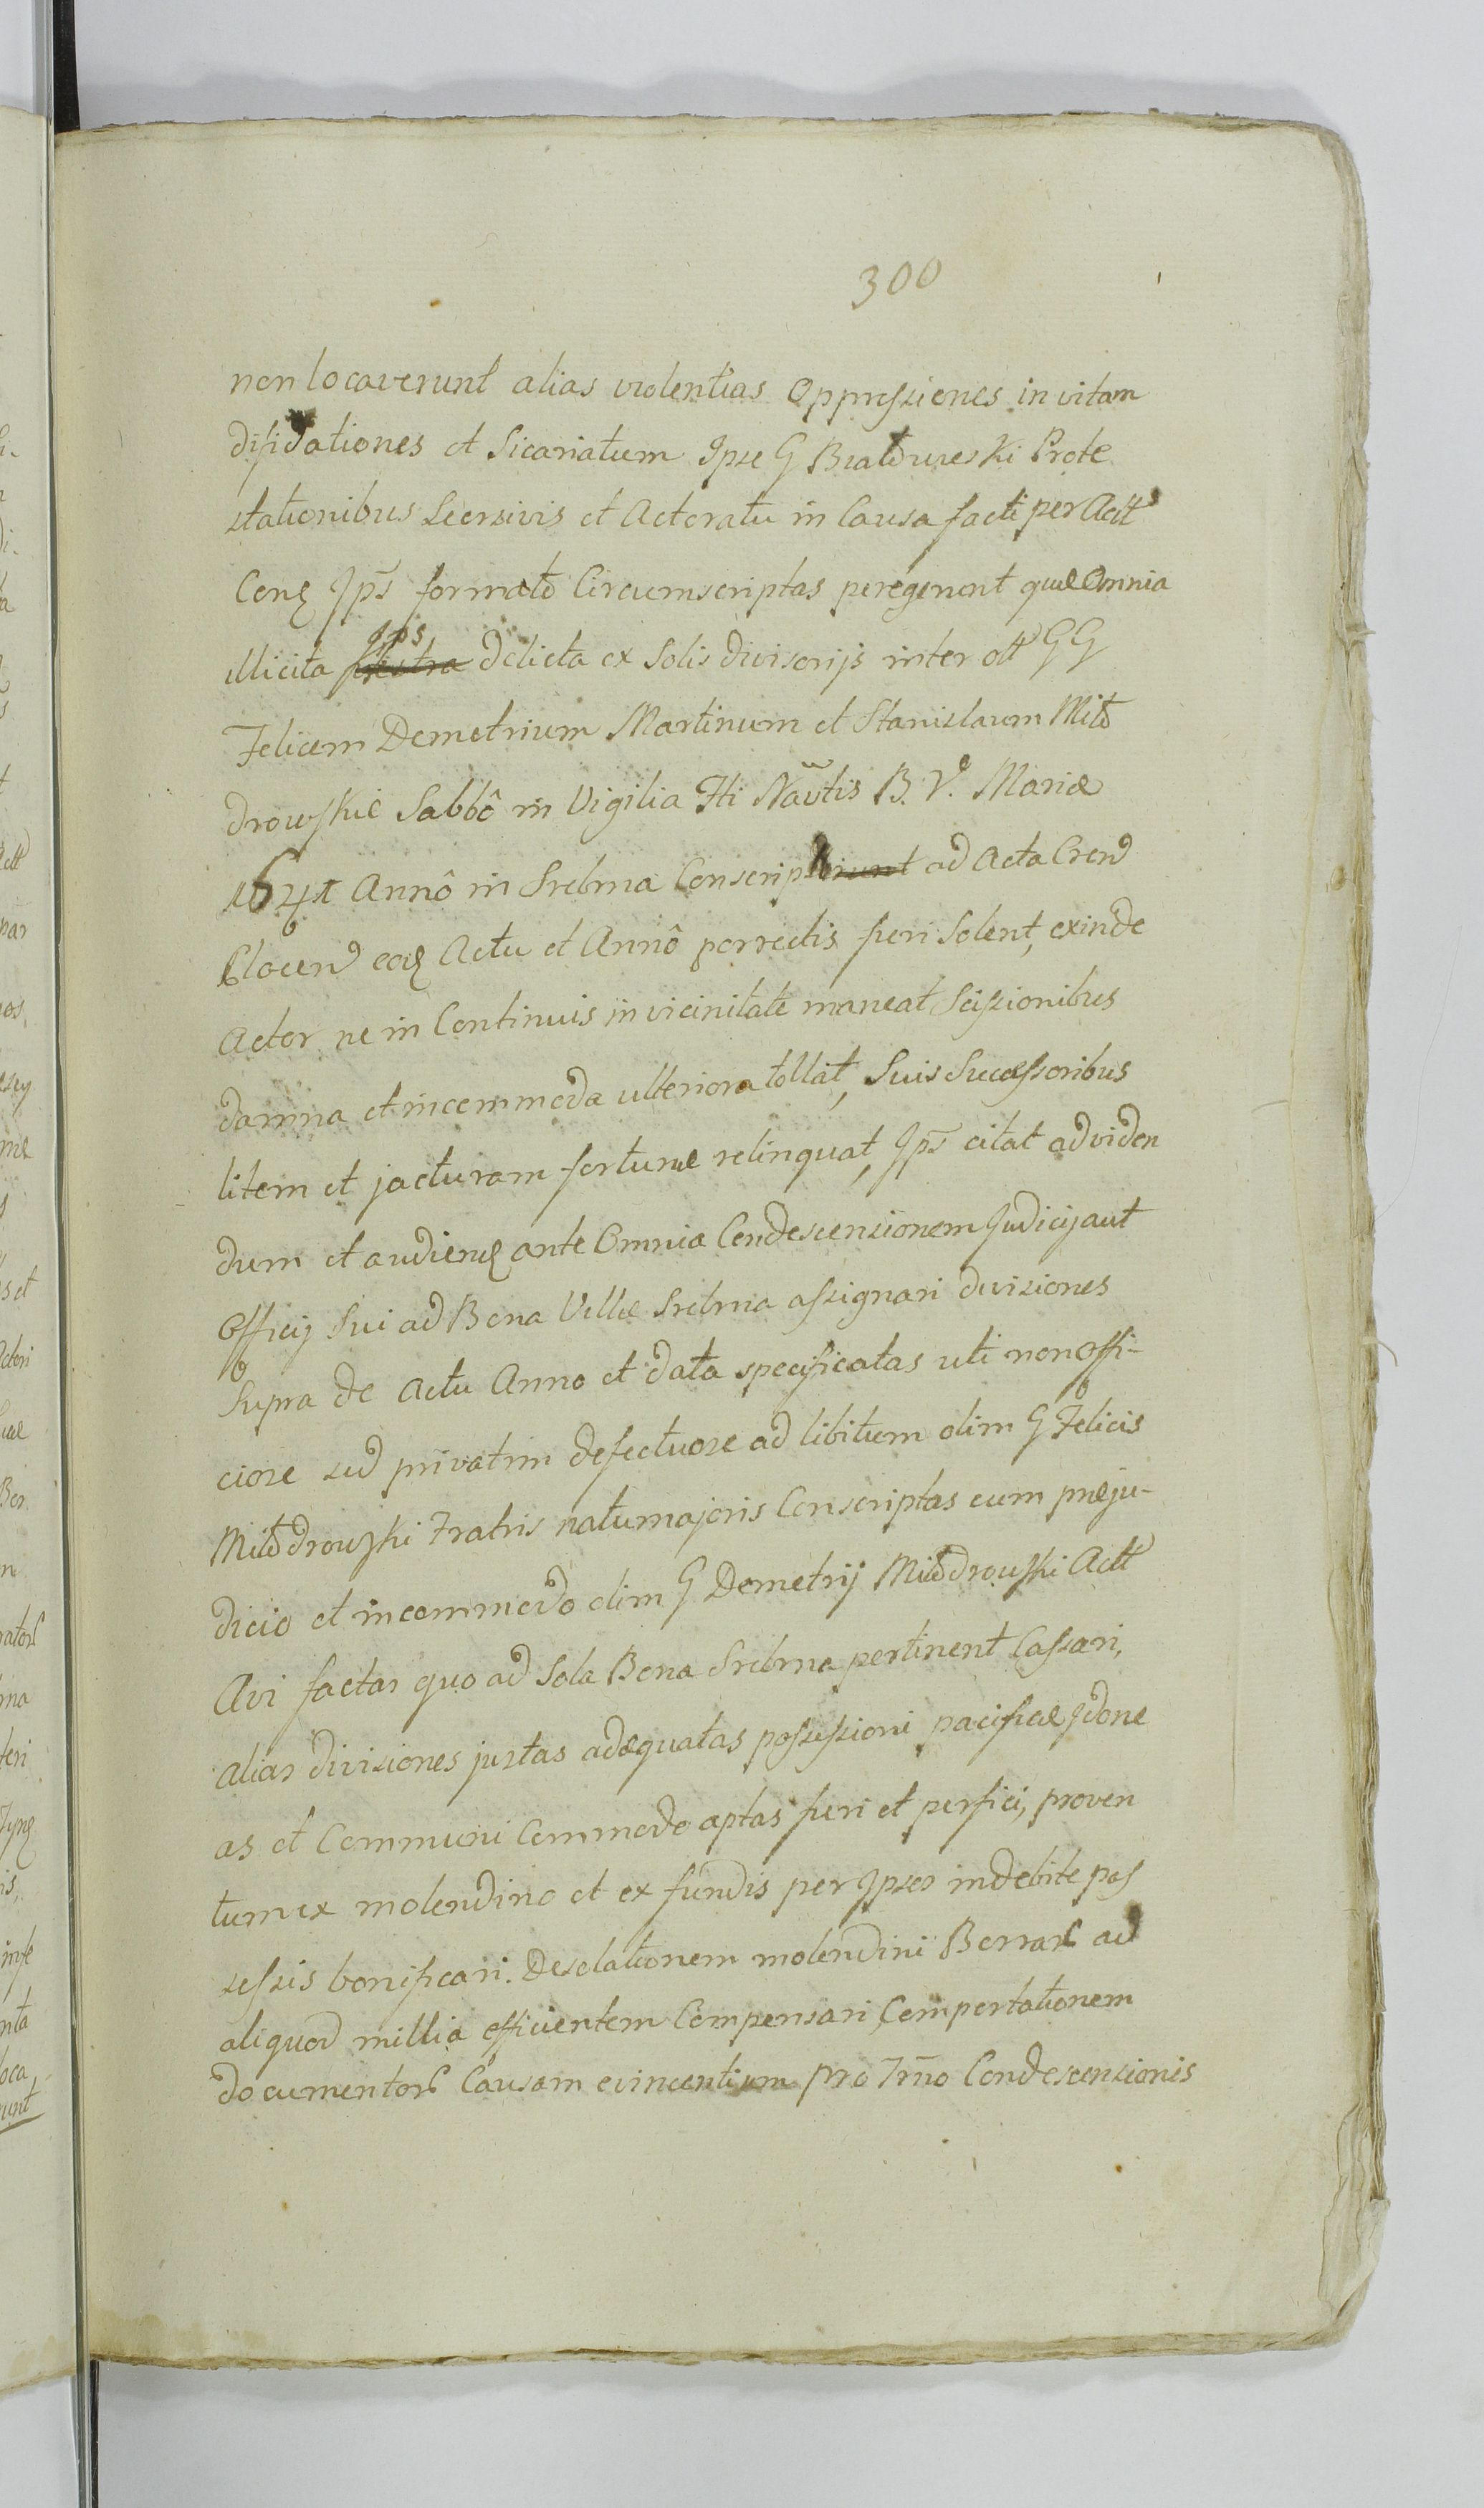 300
non locaverunt alias violentias Oppressiones in vitam
difidationes et Sicariatum Ipse G Bratduzeski Prote
stationibus Seorsivis et Actoratu in Causa facti per Actt
Conq Ips formato Circumscriptas peregerunt quæ Omnia
illicita Ips delicta ex Solis divisorijs inter ott GG
Felicem Demetrium Martinum et Stanislaum Mito
drowskie Sabbô in Vigilia Fti Navtis B. V. Mariæ
1641 Annô in Srebrna Conscrip ad Acta Cren
Plocen eoq Actu et Annô porrectis fieri Solent, exinde
Actor ne in Continuis in vicinitate maneat Scissionibus
damna et incommoda ulteriora tollat, Suis Successoribus
litem et jacturam fortunæ relinquat, Ips citat ad viden
dum et audienq ante Omnia Condescensionem Judicij aut
Officij Sui ad Bona Villæ Srebrna assignari divisiones
Supra de Actu Anno et data specificatas uti non offi-
ciose sed privatim defectuose ad libitum olim G Felicis
Mitodrowski Fratris natu majoris Conscriptas cum præju-
dicio et incommodo olim G Demetrij Mitodrowski Actt
Avi factas quo ad Sola Bona Srebrna pertinent Cassari,
alias divisiones justas adæquatas possessioni pacificæ Jdone
as et Communi Commodo aptas fieri et perfici, proven
tum ex molendino et ex fundis per Ipsos indebite pos
sessis bonificari. Desolationem molendini Borrar ad
aliquod millia efficientem Compensari, Comportationem
documentor Causam evincentium pro Trno Condescensionis